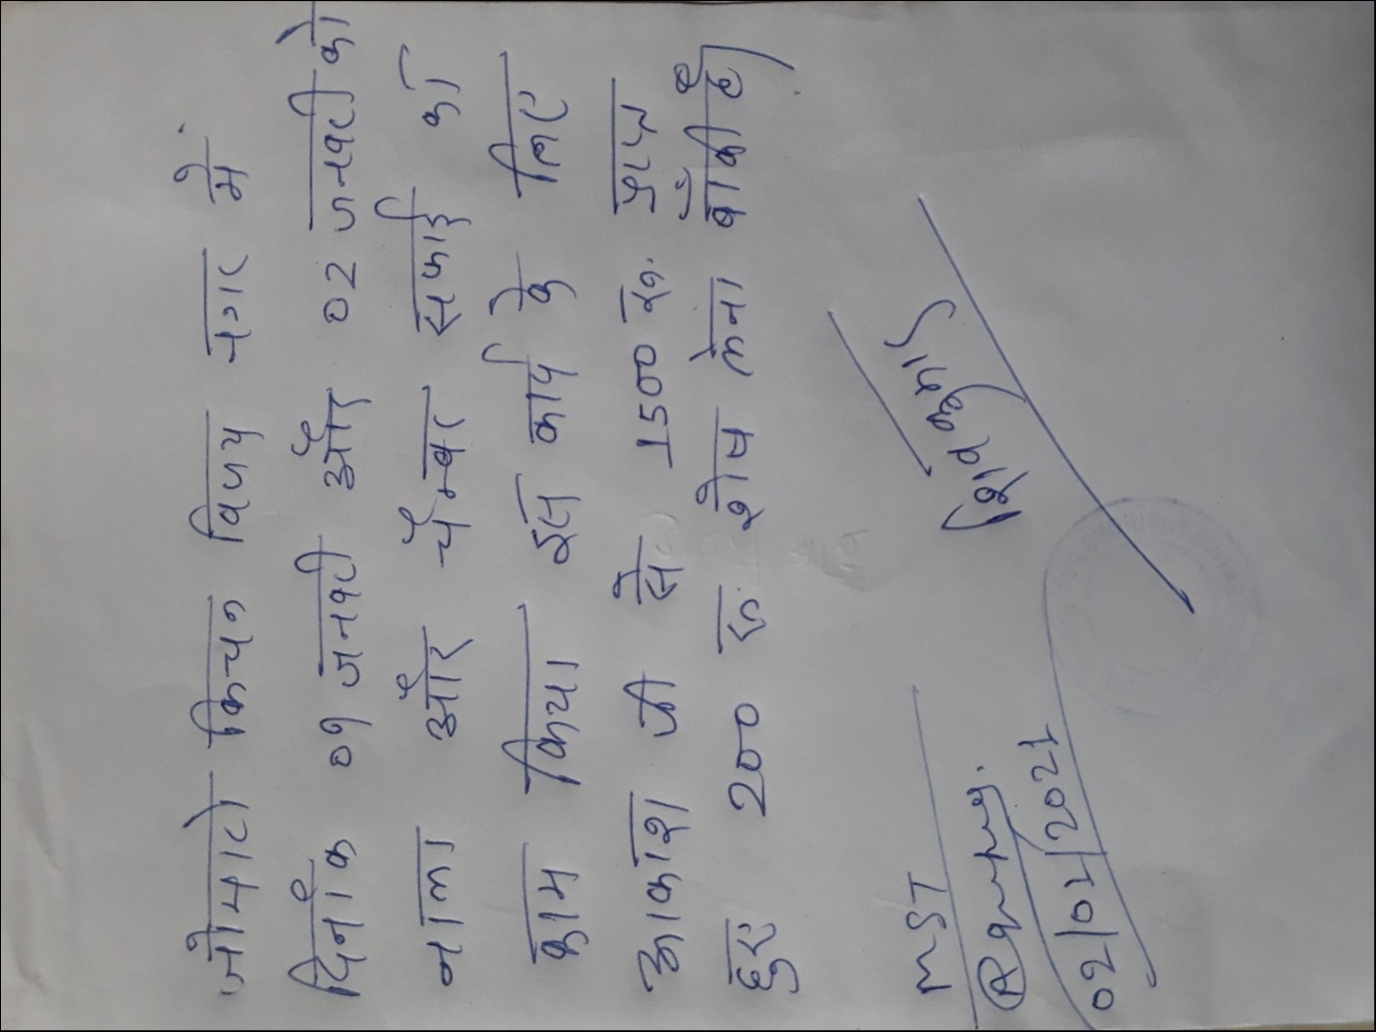 जोमाटो किचन विजय नगर में
दिनाँक 01 जनवरी और 02 जनवरी को
नाला और चेंम्बर सफाई का
काम किया इस कार्य के लिए
आकाश जी से 1500 रु. प्राप्त
हुए 200 रु शेष लेना बाँकी हैं
शिव कुमार
MST
02/01/2021